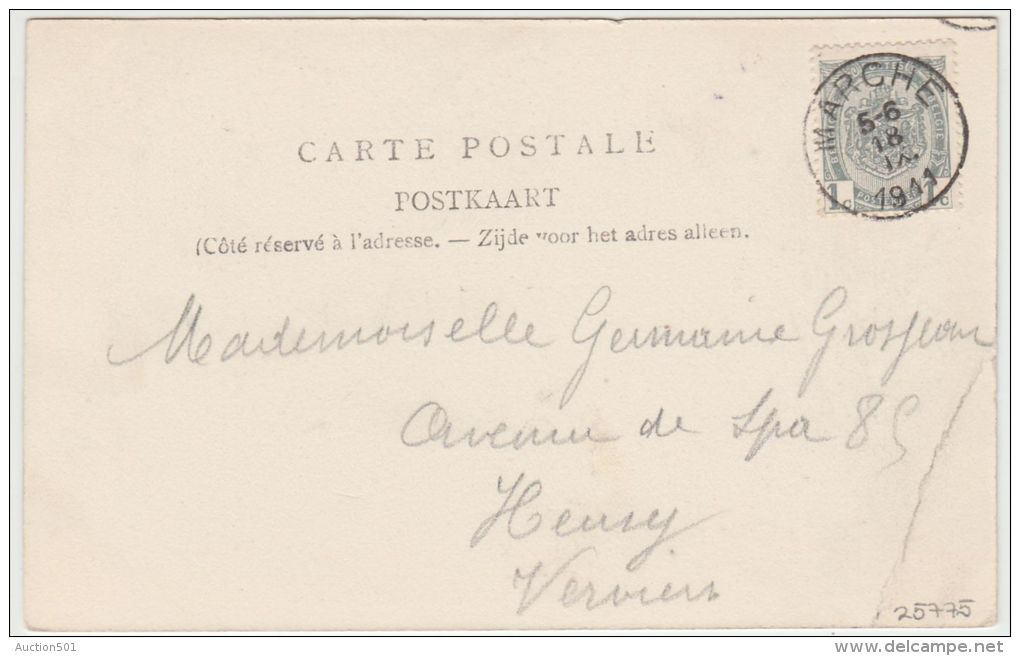 MARCHE
5-6
18
IX
1911
1c 1c
CARTE POSTALE
POSTKAART
(Côté réservé à l'adresse. — Zijde voor het adres alleen.
Mademoiselle Germaine Grosjean
Avenue de Spa 85
Heusy
Verviers
25775
Auction501
delcampe.net